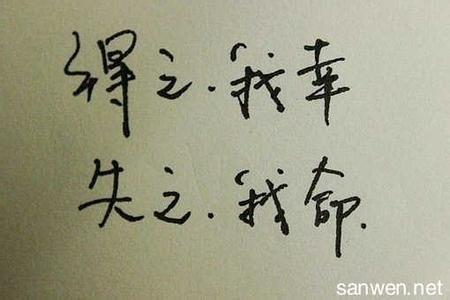 得之.我幸
失之.我命.
sanwen.net